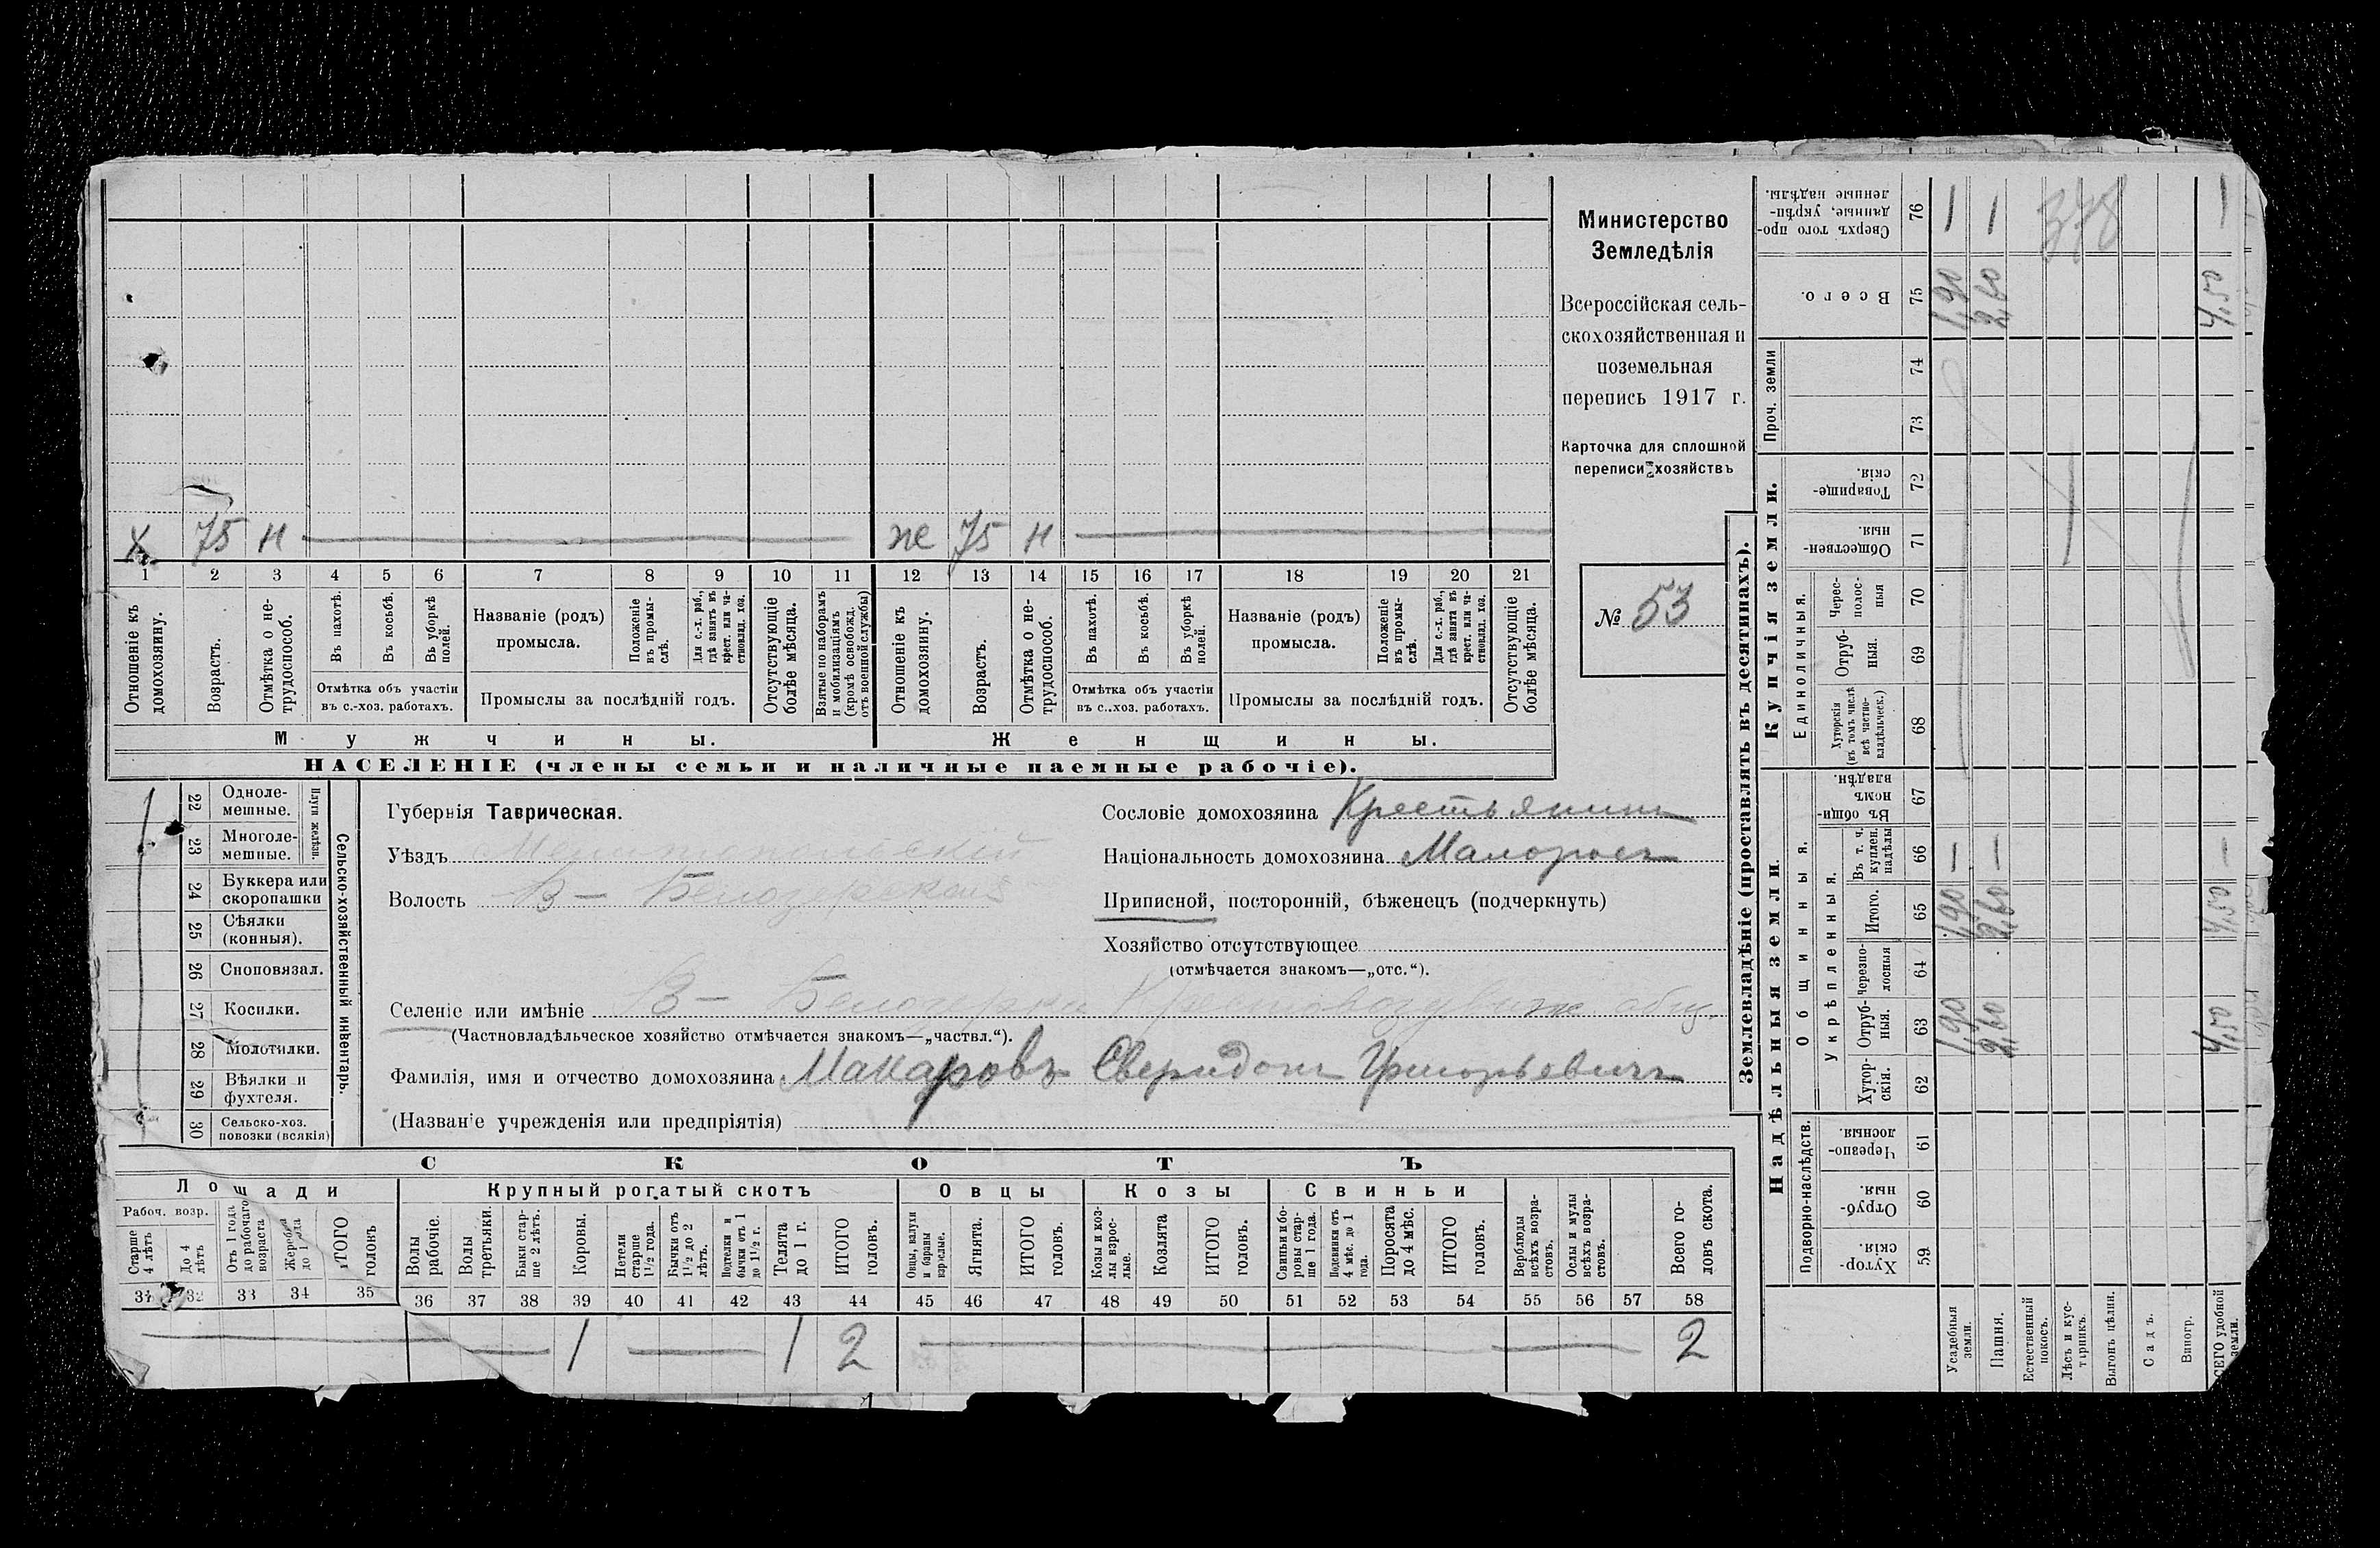 Министерство
Земледѣлія
Всероссійская сель-
скохозяйственная и
поземельная
перепись 1917 г.
Карточка для сплошной
переписи хозяйствъ
№ 53
х 75 н
же 75 н
1 2 3 4 5 6 7 8 9 10 11 12 13 14 15 16 17 18 19 20 21
Отношеніе къ домохозяину.
Возрастъ.
Отмѣтка о не-трудоспособ.
Въ пахотѣ.
Въ косьбѣ.
Въ уборкѣ полей.
Отмѣтка объ участіи
въ с.-хоз. работахъ.
Названіе (родъ)
промысла.
Положеніе въ промы-слѣ.
Для с.-х. раб., гдѣ занятъ въ крест. или ча-стновлад. хоз.
Промыслы за послѣдній годъ.
Отсутствующіе болѣе мѣсяца.
Взятые по наборамъ и мобилизаціямъ (кромѣ освобожд. отъ военной службы)
Отношеніе къ домохозяину.
Возрастъ.
Отмѣтка о не-трудоспособ.
Въ пахотѣ.
Въ косьбѣ.
Въ уборкѣ полей.
Отмѣтка объ участіи
въ с..хоз. работахъ.
Названіе (родъ)
промысла.
Положеніе въ промы-слѣ.
Для с.-х. раб., гдѣ занята въ крест. или ча-стновлад. хоз.
Промыслы за послѣдній годъ.
Отсутствующіе болѣе мѣсяца.
Мужчины.
Женщины.
НАСЕЛЕНІЕ (члены семьи и наличные наемные рабочіе).
Сельско-хозяйственный инвентарь.
Плуги желѣзн.
22 Одноле-мешные.
23 Многоле-мешные.
24 Буккера или скоропашки
25 Сѣялки (конныя).
26 Сноповязал.
27 Косилки.
28 Молотилки.
29 Вѣялки и фухтеля.
30 Сельско-хоз. повозки (всякія)
Губернія Таврическая.
Уѣздъ Мелитопольскій
Волость В-Белозерская
Селеніе или имѣніе В-Белозерка Крестовоздвиж общ.
(Частновладѣльческое хозяйство отмѣчается знакомъ—„частвл.“).
Фамилія, имя и отчество домохозяина Макаровъ Свиридонъ Григорьевичъ
(Названіе учрежденія или предпріятія)
Сословіе домохозяина Крестьянинъ
Національность домохозяина Малороссъ
Приписной, посторонній, бѣженецъ (подчеркнуть)
Хозяйство отсутствующее
(отмѣчается знакомъ—„отс.“).
СКОТЪ
Лошади
Рабоч. возр.
Старше 4 лѣтъ
До 4 лѣтъ
Отъ 1 года до рабочаго возраста
ИТОГО головъ
Крупный рогатый скотъ
Волы рабочіе.
Волы третьяки.
Быки стар-ше 2 лѣтъ.
Коровы.
Нетели старше 1½ года.
Бычки отъ 1½ до 2 лѣтъ.
Подтелки и бычки отъ 1 до 1½ г.
Телята до 1 г.
ИТОГО головъ.
Овцы
Овцы, валухи и бараны взрослые.
Ягнята.
ИТОГО головъ.
Козы
Козы и коз-лы взрос-лые.
Козлята
ИТОГО головъ.
Свиньи
Свиньи и бо-ровы стар-ше 1 года.
Подсвинки отъ 4 мѣс. до 1 года.
Поросята до 4 мѣс.
ИТОГО головъ.
Верблюды всѣхъ возра-стовъ.
Ослы и мулы всѣхъ возра-стовъ.
Всего го-ловъ скота.
31 32 33 34 35 36 37 38 39 40 41 42 43 44 45 46 47 48 49 50 51 52 53 54 55 56 57 58
1 1 2 2
Землевладѣніе (проставлять въ десятинахъ).
Надѣльныя земли.
Подворно-наслѣдств.
Хутор-скія. 59
Отруб-ныя. 60
Черезпо-лосныя. 61
Общинныя.
Укрѣпленныя.
Хутор-скія. 62
Отруб-ныя. 63
Черезпо-лосныя 64
Итого. 65
Въ т. ч. куплен. надѣлы 66
Въ общи-номъ владѣн. 67
Купчія земли.
Единоличныя.
Хуторскія (въ томъ числѣ всѣ частно-владѣльческ.) 68
Отруб-ныя. 69
Черес-полос-ныя 70
Обществен-ныя. 71
Товарище-скія. 72
Проч. земли
73 74
Всего. 75
Сверхъ того про-данные, укрѣп-ленные надѣлы. 76
Усадебныя земли. 1,90 1,90 1,90
Пашня. 2,60 2,60 2,60
Естественный покосъ.
Лѣсъ и кус-тарникъ.
Выгонъ цѣлин.
Садъ.
Виногр.
ВСЕГО удобной земли. 4,50 4,50 4,50
378